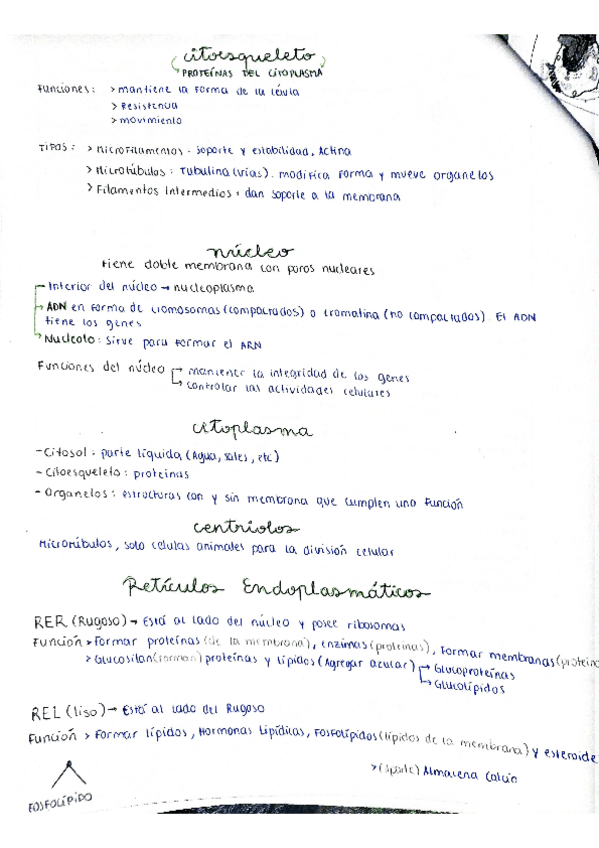 citoesqueleto
PROTEÍNAS DEL CITOPLASMA
Funciones: > mantiene la forma de la célula
> Resistencia
> movimiento
Tipos: > Microfilamentos. soporte y estabilidad, Actina
> Microtúbulos: Tubulina (vías). modifica forma y mueve organelos
> Filamentos Intermedios: dan soporte a la membrana
núcleo
tiene doble membrana con poros nucleares
Interior del núcleo → nucleoplasma
ADN en forma de cromosomas (compactados) o cromatina (no compactados). El ADN
tiene los genes
Nucleolo: Sirve para formar el ARN
Funciones del núcleo → mantener la integridad de los genes
→ controlar las actividades celulares
citoplasma
- Citosol: parte líquida (Agua, sales, etc)
- Citoesqueleto: proteinas
- Organelos: estructuras con y sin membrana que cumplen una función
centriolos
Microtúbulos, solo celulas animales para la división celular
Retículos Endoplasmáticos
RER (Rugoso) → Está al lado del núcleo y posee ribosomas
Función > Formar proteínas (de la membrana), enzimas (proteinas), Formar membranas (proteina
> Glucosilan (forman) proteínas y lípidos (Agregar azucar) → Glucoproteínas
→ Glucolípidos
REL (liso) → Está al lado del Rugoso
Función > Formar lípidos, Hormonas Lipídicas, Fosfolípidos (lípidos de la membrana) y esteroide
> (aparte) Almacena Calcio
FOSFOLÍPIDO